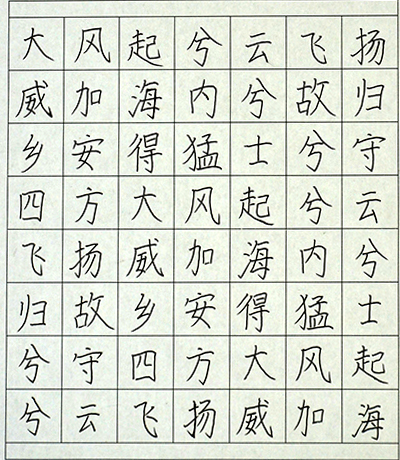 大风起兮云飞扬
威加海内兮故归
乡安得猛士兮守
四方大风起兮云
飞扬威加海内兮
归故乡安得猛士
兮守四方大风起
兮云飞扬威加海